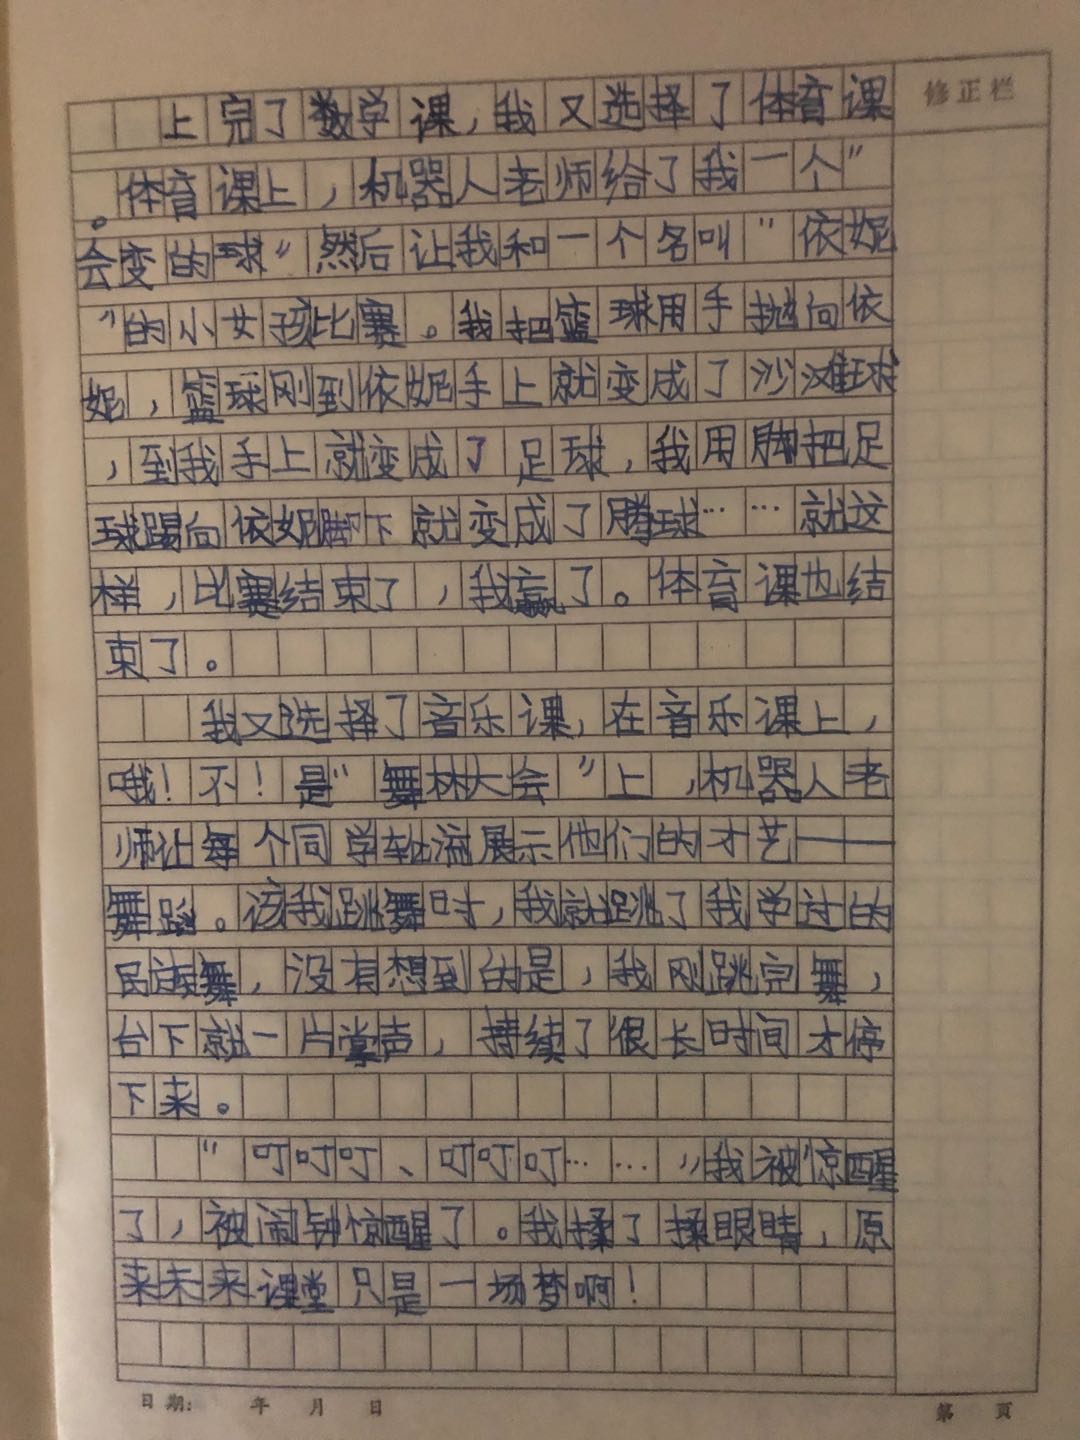 修正栏
上完了数学课，我又选择了体育课
。体育课上，机器人老师给了我一个"
会变的球"然后让我和一个名叫"依妮
"的小女孩比赛。我把篮球用手抛向依
妮，篮球刚到依妮手上就变成了沙滩球
，到我手上就变成了足球，我用脚把足
球踢向依妮脚下就变成了腾球……就这
样，比赛结束了，我赢了。体育课也结
束了。
我又选择了音乐课，在音乐课上，
哦！不！是"舞林大会"上，机器人老
师让每个同学轮流展示他们的才艺——
舞蹈。该我跳舞时，我就跳了我学过的
民族舞，没有想到的是，我刚跳完舞，
台下就一片掌声，持续了很长时间才停
下来。
"叮叮叮、叮叮叮……"我被惊醒
了，被闹钟惊醒了。我揉了揉眼睛，原
来未来课堂只是一场梦啊！
日期： 年 月 日
第 页